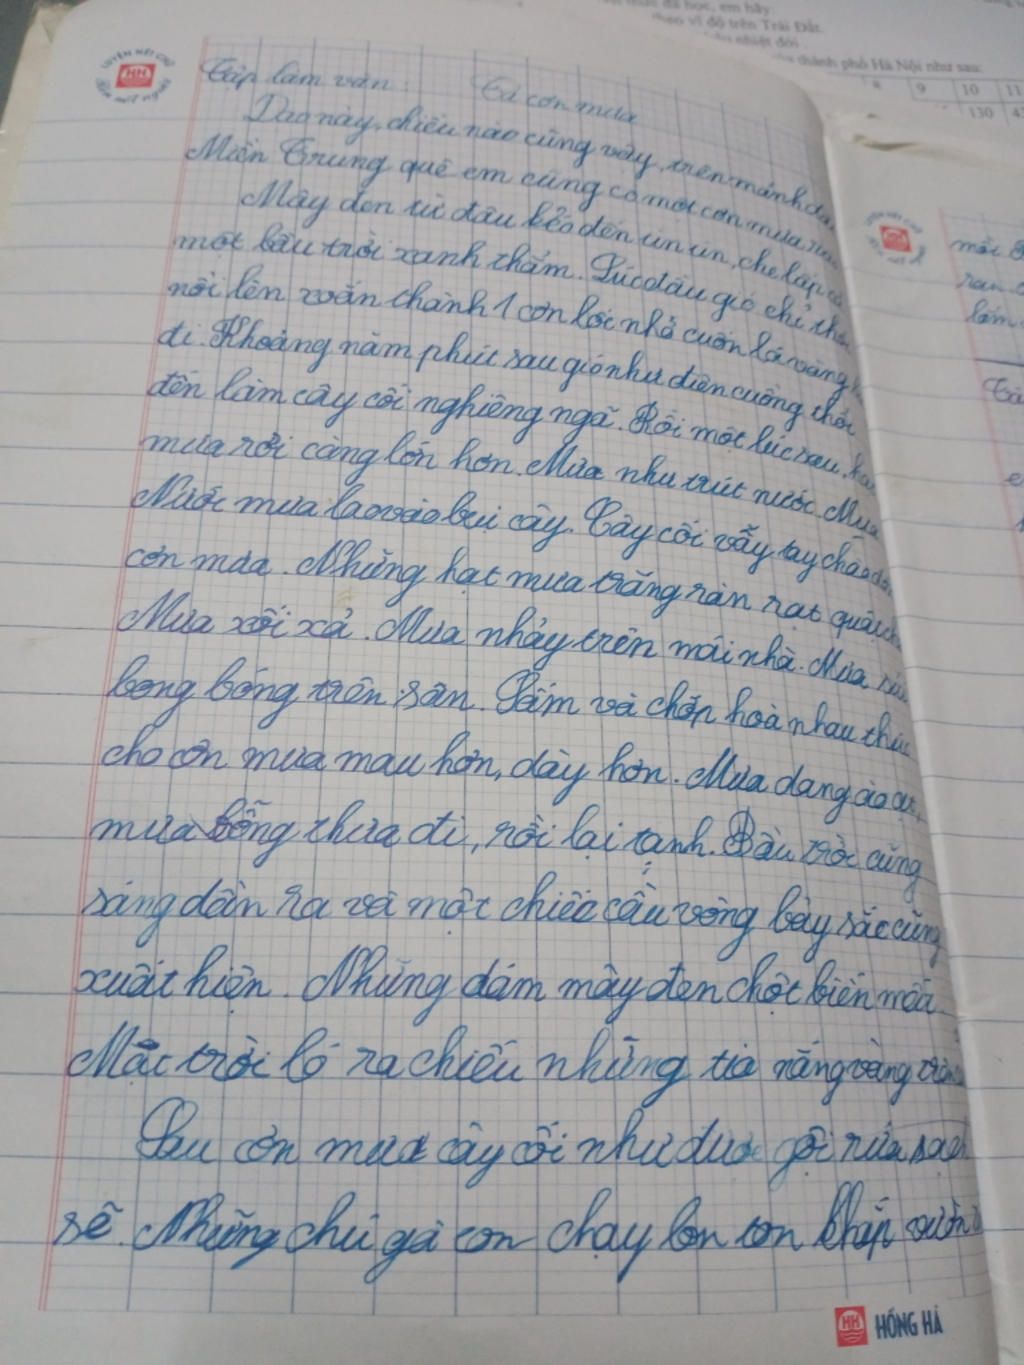 học, em hãy
theo vĩ độ trên Trái Đất.
nhiệt đới
thành phố Hà Nội như sau:
8 9 10 11
130
LUYỆN NÉT CHỮ
HH
Rèn nết người
Tập làm văn: Tả cơn mưa
Dạo này, chiều nào cũng vậy, trên mảnh đất
Miền Trung quê em cũng có một cơn mưa rào
Mây đen từ đâu kéo đến ùn ùn, che lấp cả
một bầu trời xanh thẳm. Lúc đầu gió chỉ
nổi lên xoắn thành 1 cơn lốc nhỏ cuốn lá vàng
đi. Khoảng năm phút sau gió như điên cuồng thổi
đến làm cây cối nghiêng ngã. Rồi một lúc sau,
mưa rơi càng lớn hơn. Mưa như trút nước. Mưa
Nước mưa lao vào bụi cây. Cây cối vẫy tay chào đón
cơn mưa. Những hạt mưa trắng ràn rạt
Mưa xối xả. Mưa nhảy trên mái nhà. Mưa
bong bóng trên sân. Sấm và chớp hoà nhau thúc
cho cơn mưa mau hơn, dày hơn. Mưa đang ào ạt,
mưa bỗng thưa đi, rồi lại tạnh. Bầu trời cũng
sáng dần ra và một chiếc cầu vồng bảy sắc cũng
xuất hiện. Những đám mây đen chợt biến mất
Mặt trời ló ra chiếu những tia nắng vàng
Sau cơn mưa cây cối như được gội rửa sạch
sẽ. Những chú gà con chạy lon ton khắp vườn
HH HỒNG HÀ